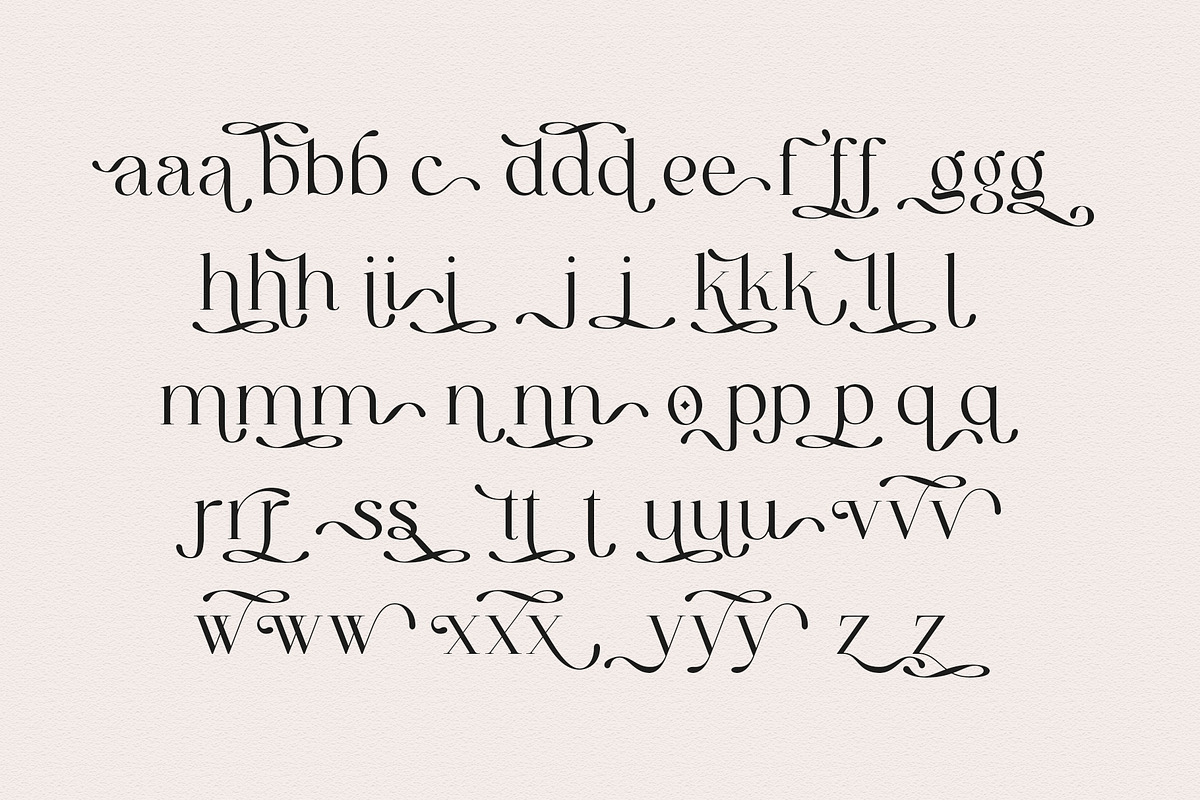 aaa bbb c ddd ee f ff ggg
hhh iii j j kkk ll l
mmm n nn o pp p q q
rrr ss tt t uuu vvv
www xxx yyy z z